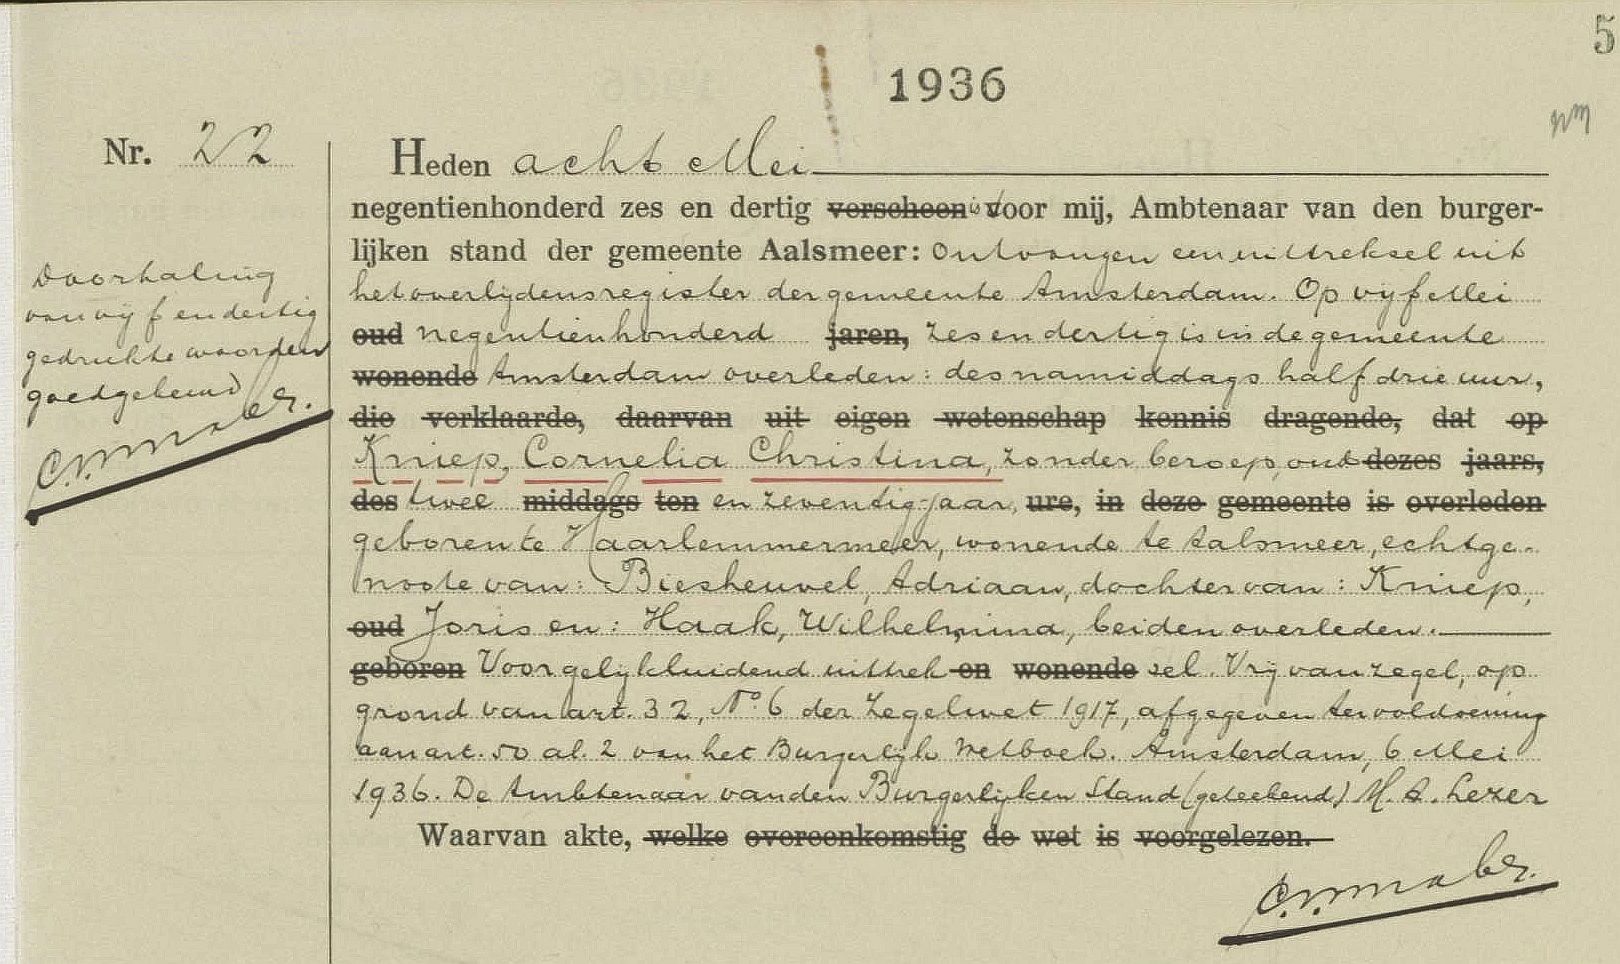 5
1936
nm
Nr. 22
Heden acht Mei
negentienhonderd zes en dertig verscheen is voor mij, Ambtenaar van den burger-
lijken stand der gemeente Aalsmeer: ontvangen een uittreksel uit
het overlijdensregister der gemeente Amsterdam. Op vijf Mei
oud negentienhonderd jaren, zes en dertig is in de gemeente
wonende Amsterdam overleden: des namiddags half drie uur,
die verklaarde, daarvan uit eigen wetenschap kennis dragende, dat op
Kniep, Cornelia Christina, zonder beroep, oud dezes jaars,
des twee middags ten en zeventig jaar, ure, in deze gemeente is overleden
geboren te Haarlemmermeer, wonende te Aalsmeer, echtge-
noote van: Biesheuvel, Adriaan, dochter van: Kniep,
oud Joris en: Haak, Wilhelmina, beiden overleden.
geboren Voor gelijkluidend uittrek en wonende sel. Vrij van zegel, op
grond van art. 32, No. 6 der Zegelwet 1917, afgegeven ter voldoening
aan art. 50 al. 2 van het Burgerlijk Wetboek. Amsterdam, 6 Mei
1936. De Ambtenaar van den Burgerlijken Stand (geteekend) M. A. Lezer
Waarvan akte, welke overeenkomstig de wet is voorgelezen.
Doorhaling
van vijf en dertig
gedrukte woorden
goedgekeurd